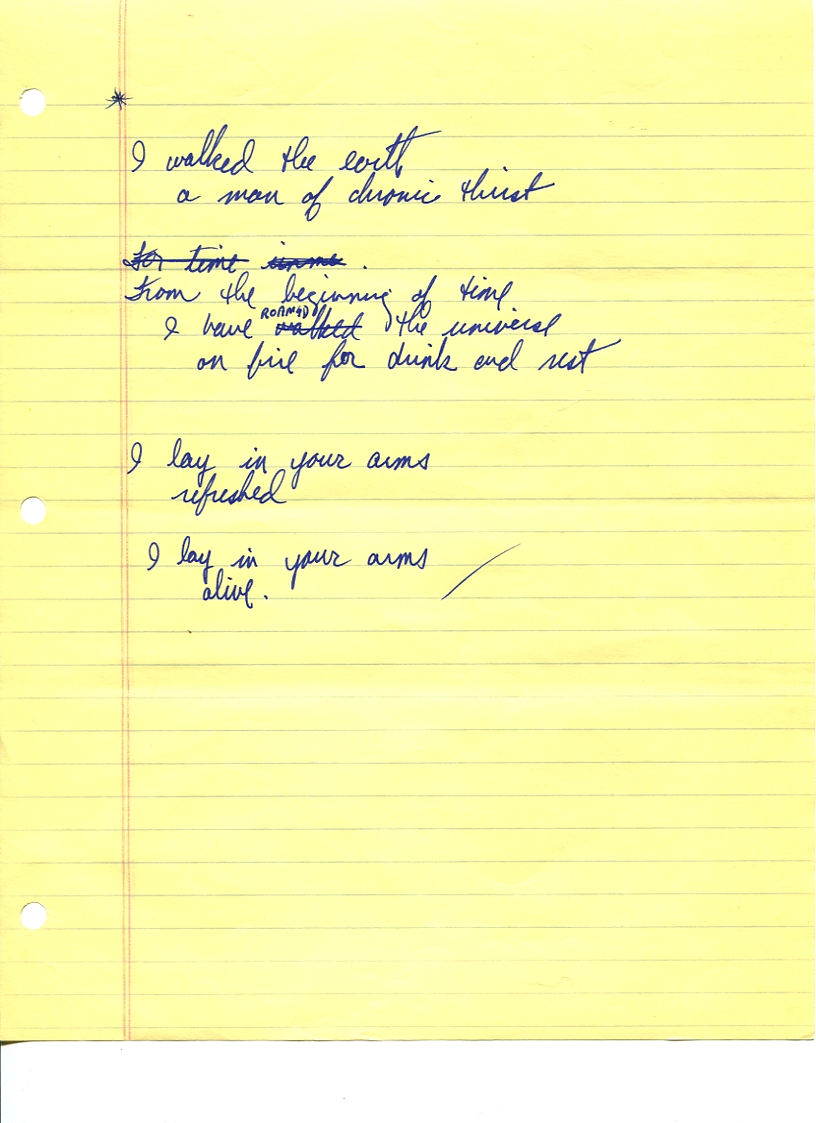 *
I walked the earth
a man of chronic thirst
For time
From the beginning of time
I have ROAMED walked the universe
on fire for drink and rest
I lay in your arms
refreshed
I lay in your arms
alive.